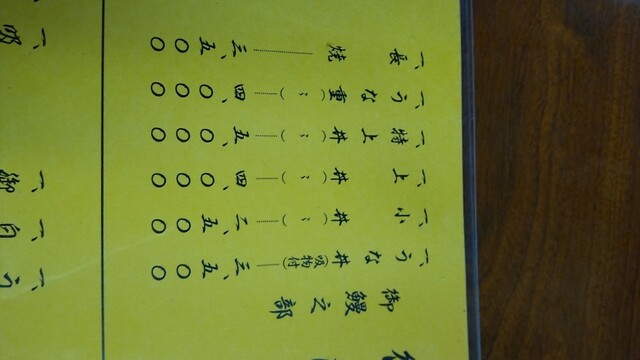 御鰻之部
一、うな丼(吸物付)―三、五〇〇
一、小丼(〃)……二、五〇〇
一、上丼(〃)……四、〇〇〇
一、特上丼(〃)……五、〇〇〇
一、うな重(〃)……四、〇〇〇
一、長焼……三、五〇〇
一、う
一、白
一、御
一、吸